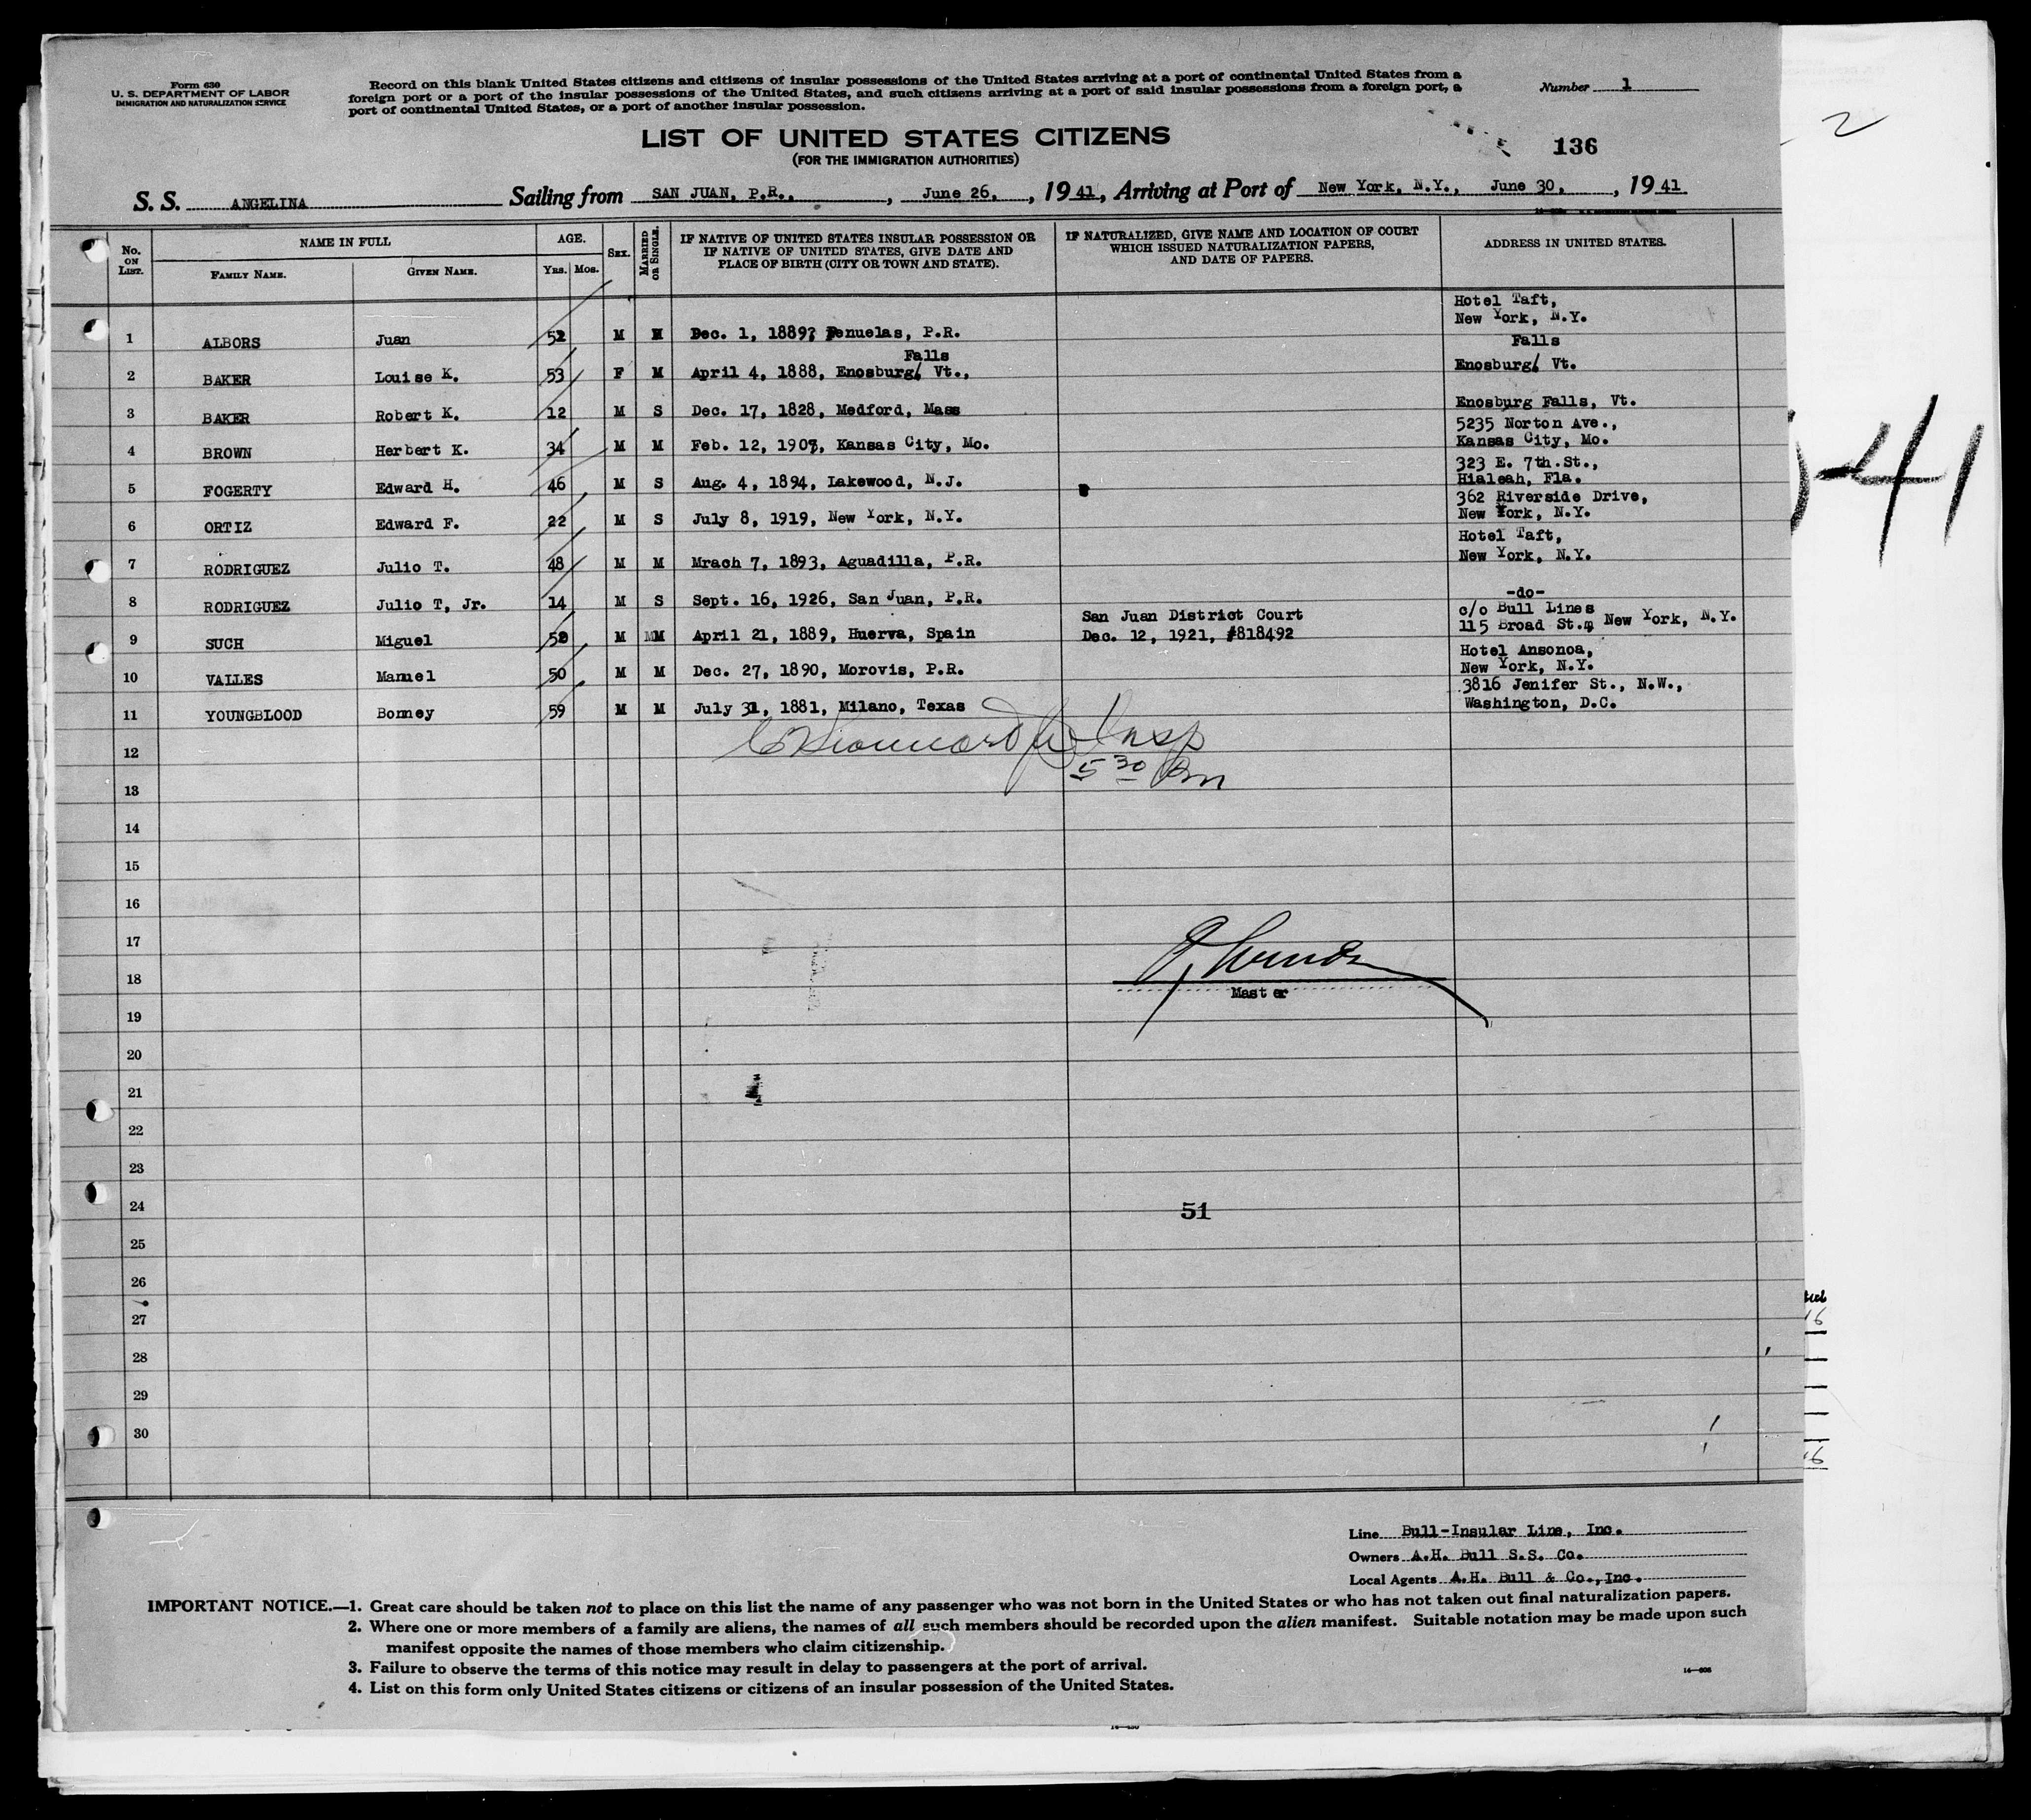 Form 630
U. S. DEPARTMENT OF LABOR
IMMIGRATION AND NATURALIZATION SERVICE
Record on this blank United States citizens and citizens of insular possessions of the United States arriving at a port of continental United States from a
foreign port or a port of the insular possessions of the United States, and such citizens arriving at a port of said insular possessions from a foreign port, a
port of continental United States, or a port of another insular possession.
Number 1
2
LIST OF UNITED STATES CITIZENS
(FOR THE IMMIGRATION AUTHORITIES)
136
S. S. ANGELINA Sailing from SAN JUAN, P.R., , June 26, , 1941, Arriving at Port of New York, N.Y., June 30, , 1941
No. ON LIST. NAME IN FULL FAMILY NAME. GIVEN NAME. AGE. YRS. MOS. SEX. MARRIED OR SINGLE.
IF NATIVE OF UNITED STATES INSULAR POSSESSION OR
IF NATIVE OF UNITED STATES, GIVE DATE AND
PLACE OF BIRTH (CITY OR TOWN AND STATE).
IF NATURALIZED, GIVE NAME AND LOCATION OF COURT
WHICH ISSUED NATURALIZATION PAPERS,
AND DATE OF PAPERS.
ADDRESS IN UNITED STATES.
Hotel Taft,
New York, N.Y.
1 ALBORS Juan 52 M M Dec. 1, 1889, Penuelas, P.R.
Falls Falls
2 BAKER Louise K. 53 F M April 4, 1888, Enosburg/ Vt., Enosburg/ Vt.
3 BAKER Robert K. 12 M S Dec. 17, 1828, Medford, Mass Enosburg Falls, Vt.
5235 Norton Ave.,
4 BROWN Herbert K. 34 M M Feb. 12, 1907, Kansas City, Mo. Kansas City, Mo.
323 E. 7th.St.,
5 FOGERTY Edward H. 46 M S Aug. 4, 1894, Lakewood, N.J. Hialeah, Fla.
362 Riverside Drive,
6 ORTIZ Edward F. 22 M S July 8, 1919, New York, N.Y. New York, N.Y.
Hotel Taft,
7 RODRIGUEZ Julio T. 48 M M Mrach 7, 1893, Aguadilla, P.R. New York, N.Y.
8 RODRIGUEZ Julio T, Jr. 14 M S Sept. 16, 1926, San Juan, P.R. -do-
San Juan District Court c/o Bull Lines
9 SUCH Miguel 52 M MM April 21, 1889, Huerva, Spain Dec. 12, 1921, #818492 115 Broad St., New York, N.Y.
Hotel Ansonoa,
10 VALLES Manuel 50 M M Dec. 27, 1890, Morovis, P.R. New York, N.Y.
3816 Jenifer St., N.W.,
11 YOUNGBLOOD Bonney 59 M M July 31, 1881, Milano, Texas Washington, D.C.
Insp
12
5 30 Pm
13
14
15
16
17
18
Master
19
20
21
22
23
24
51
25
26
27
28
29
30
41
16
16
Line Bull-Insular Line, Inc.
Owners A.H. Bull S.S. Co.
Local Agents A.H. Bull & Co., Inc.
IMPORTANT NOTICE.—1. Great care should be taken not to place on this list the name of any passenger who was not born in the United States or who has not taken out final naturalization papers.
2. Where one or more members of a family are aliens, the names of all such members should be recorded upon the alien manifest. Suitable notation may be made upon such
manifest opposite the names of those members who claim citizenship.
3. Failure to observe the terms of this notice may result in delay to passengers at the port of arrival.
4. List on this form only United States citizens or citizens of an insular possession of the United States.